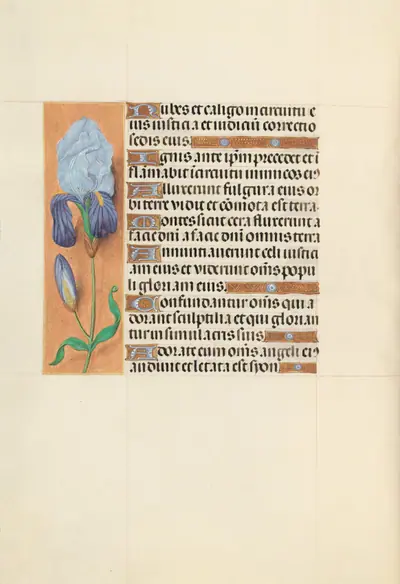 Nubes et caligo in circuitu e
ius iusticia et iudiciū correctio
sedis eius
Ignis ante ip̄m precedet et ī
flam̄abit ī circuitu inimicos ei9
Alluxerunt fulgura eius or
bi terre vidit et cōmota est terra
Montes sicut cera fluxerunt a
facie dn̄i a facie dn̄i omnis terra
Annuntiauerunt celi iustici
am eius et viderunt om̄s popu
li gloriam eius
Confundantur om̄s qui a
dorant sculptilia et qui glorian
tur in simulacris suis
Adorate eum om̄s angeli ei9
audiuit et letata est syon